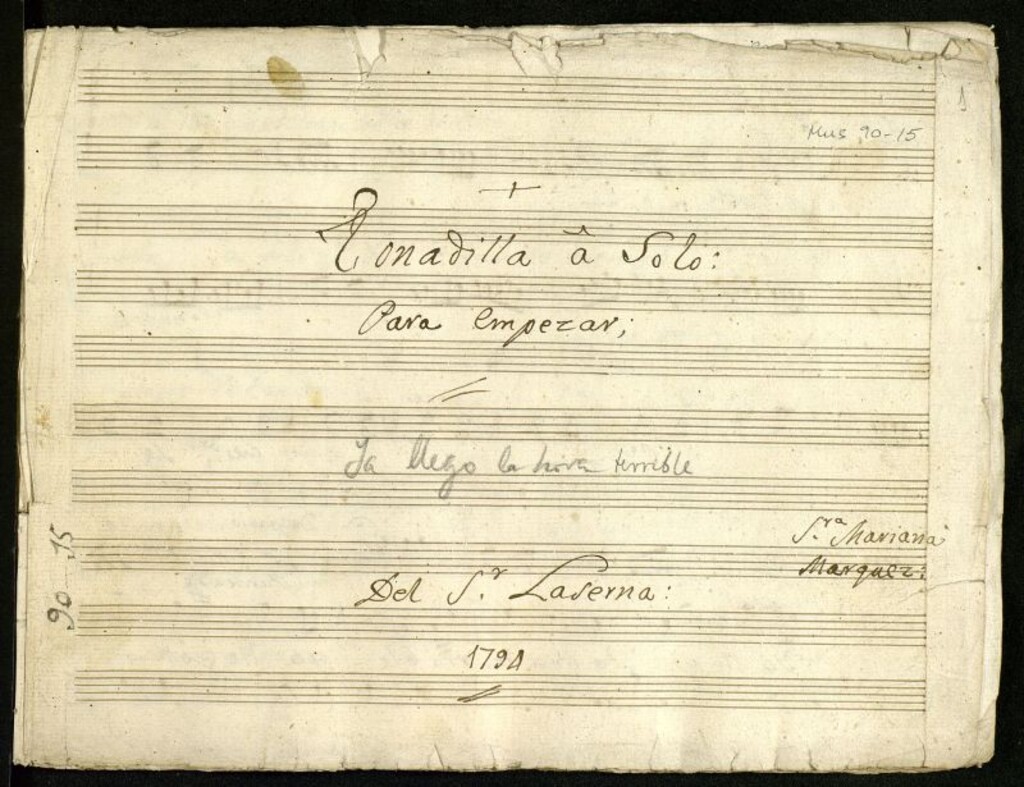 1
Mus 90-15
+
Tonadilla â Solo:
Para empezar;
Ya llego la hora terrible
S.ra Mariana
Marquez:
Del S.r Laserna:
1794
90-15